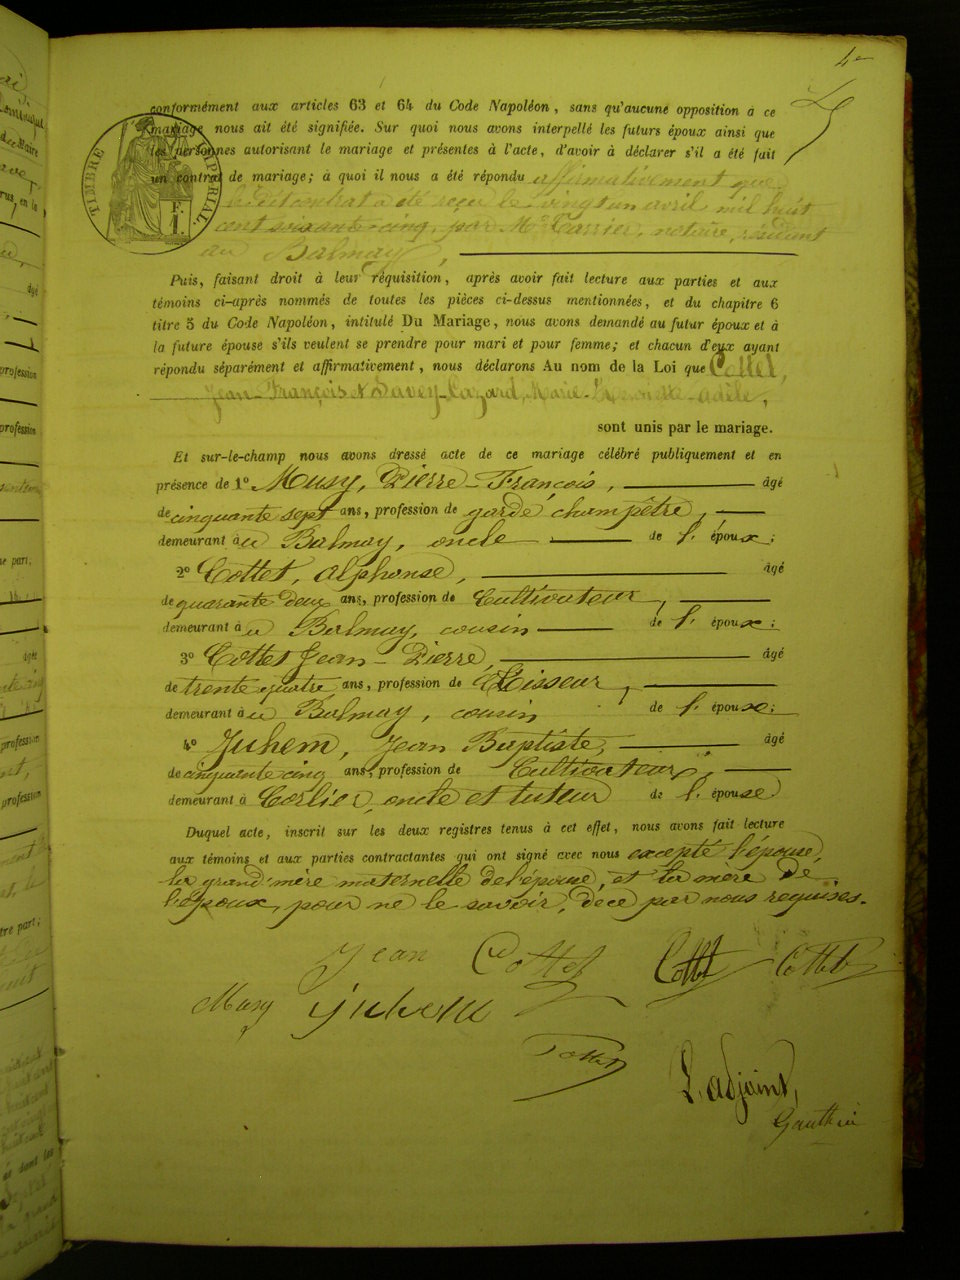 4e
conformément aux articles 63 et 64 du Code Napoléon, sans qu'aucune opposition à ce
mariage nous ait été signifiée. Sur quoi nous avons interpellé les futurs époux ainsi que
les personnes autorisant le mariage et présentes à l'acte, d'avoir à déclarer s'il a été fait
un contrat de mariage; à quoi il nous a été répondu affirmativement que
le dit contrat a été reçu le vingt un avril mil huit
cent soixante-cinq, par Me Carrier, notaire, résident
au Balmay,
TIMBRE IMPERIAL.
F.
1.
Puis, faisant droit à leur réquisition, après avoir fait lecture aux parties et aux
témoins ci-après nommés de toutes les pièces ci-dessus mentionnées, et du chapitre 6
titre 5 du Code Napoléon, intitulé Du Mariage, nous avons demandé au futur époux et à
la future épouse s'ils veulent se prendre pour mari et pour femme; et chacun d'eux ayant
répondu séparément et affirmativement, nous déclarons Au nom de la Loi que Cottet,
Jean-François et Savey-Cazard, Marie-Henriette-adèle,
sont unis par le mariage.
Et sur-le-champ nous avons dressé acte de ce mariage célébré publiquement et en
présence de 1o Musy, Pierre-François, âgé
de cinquante sept ans, profession de garde champêtre,
demeurant à u Balmay, oncle de l' époux;
2o Cottet, alphonse, âgé
de quarante deux ans, profession de Cultivateur,
demeurant à u Balmay, cousin de l' époux;
3o Cottet Jean-Pierre, âgé
de trente quatre ans, profession de Tisseur,
demeurant à u Balmay, cousin de l' époux;
4o Juhem, Jean Baptiste, âgé
de cinquante cinq ans, profession de Cultivateur,
demeurant à Corlier, oncle et tuteur de l' épouse
Duquel acte, inscrit sur les deux registres tenus à cet effet, nous avons fait lecture
aux témoins et aux parties contractantes qui ont signé avec nous excepté l'épouse,
la grand'mère maternelle de l'épouse, et la mère de
l'époux, pour ne le savoir, de ce par nous requises.
Jean Cottet Cottet Cottet
Musy Juhem
Cottet
L. adjoint,
Gauthier